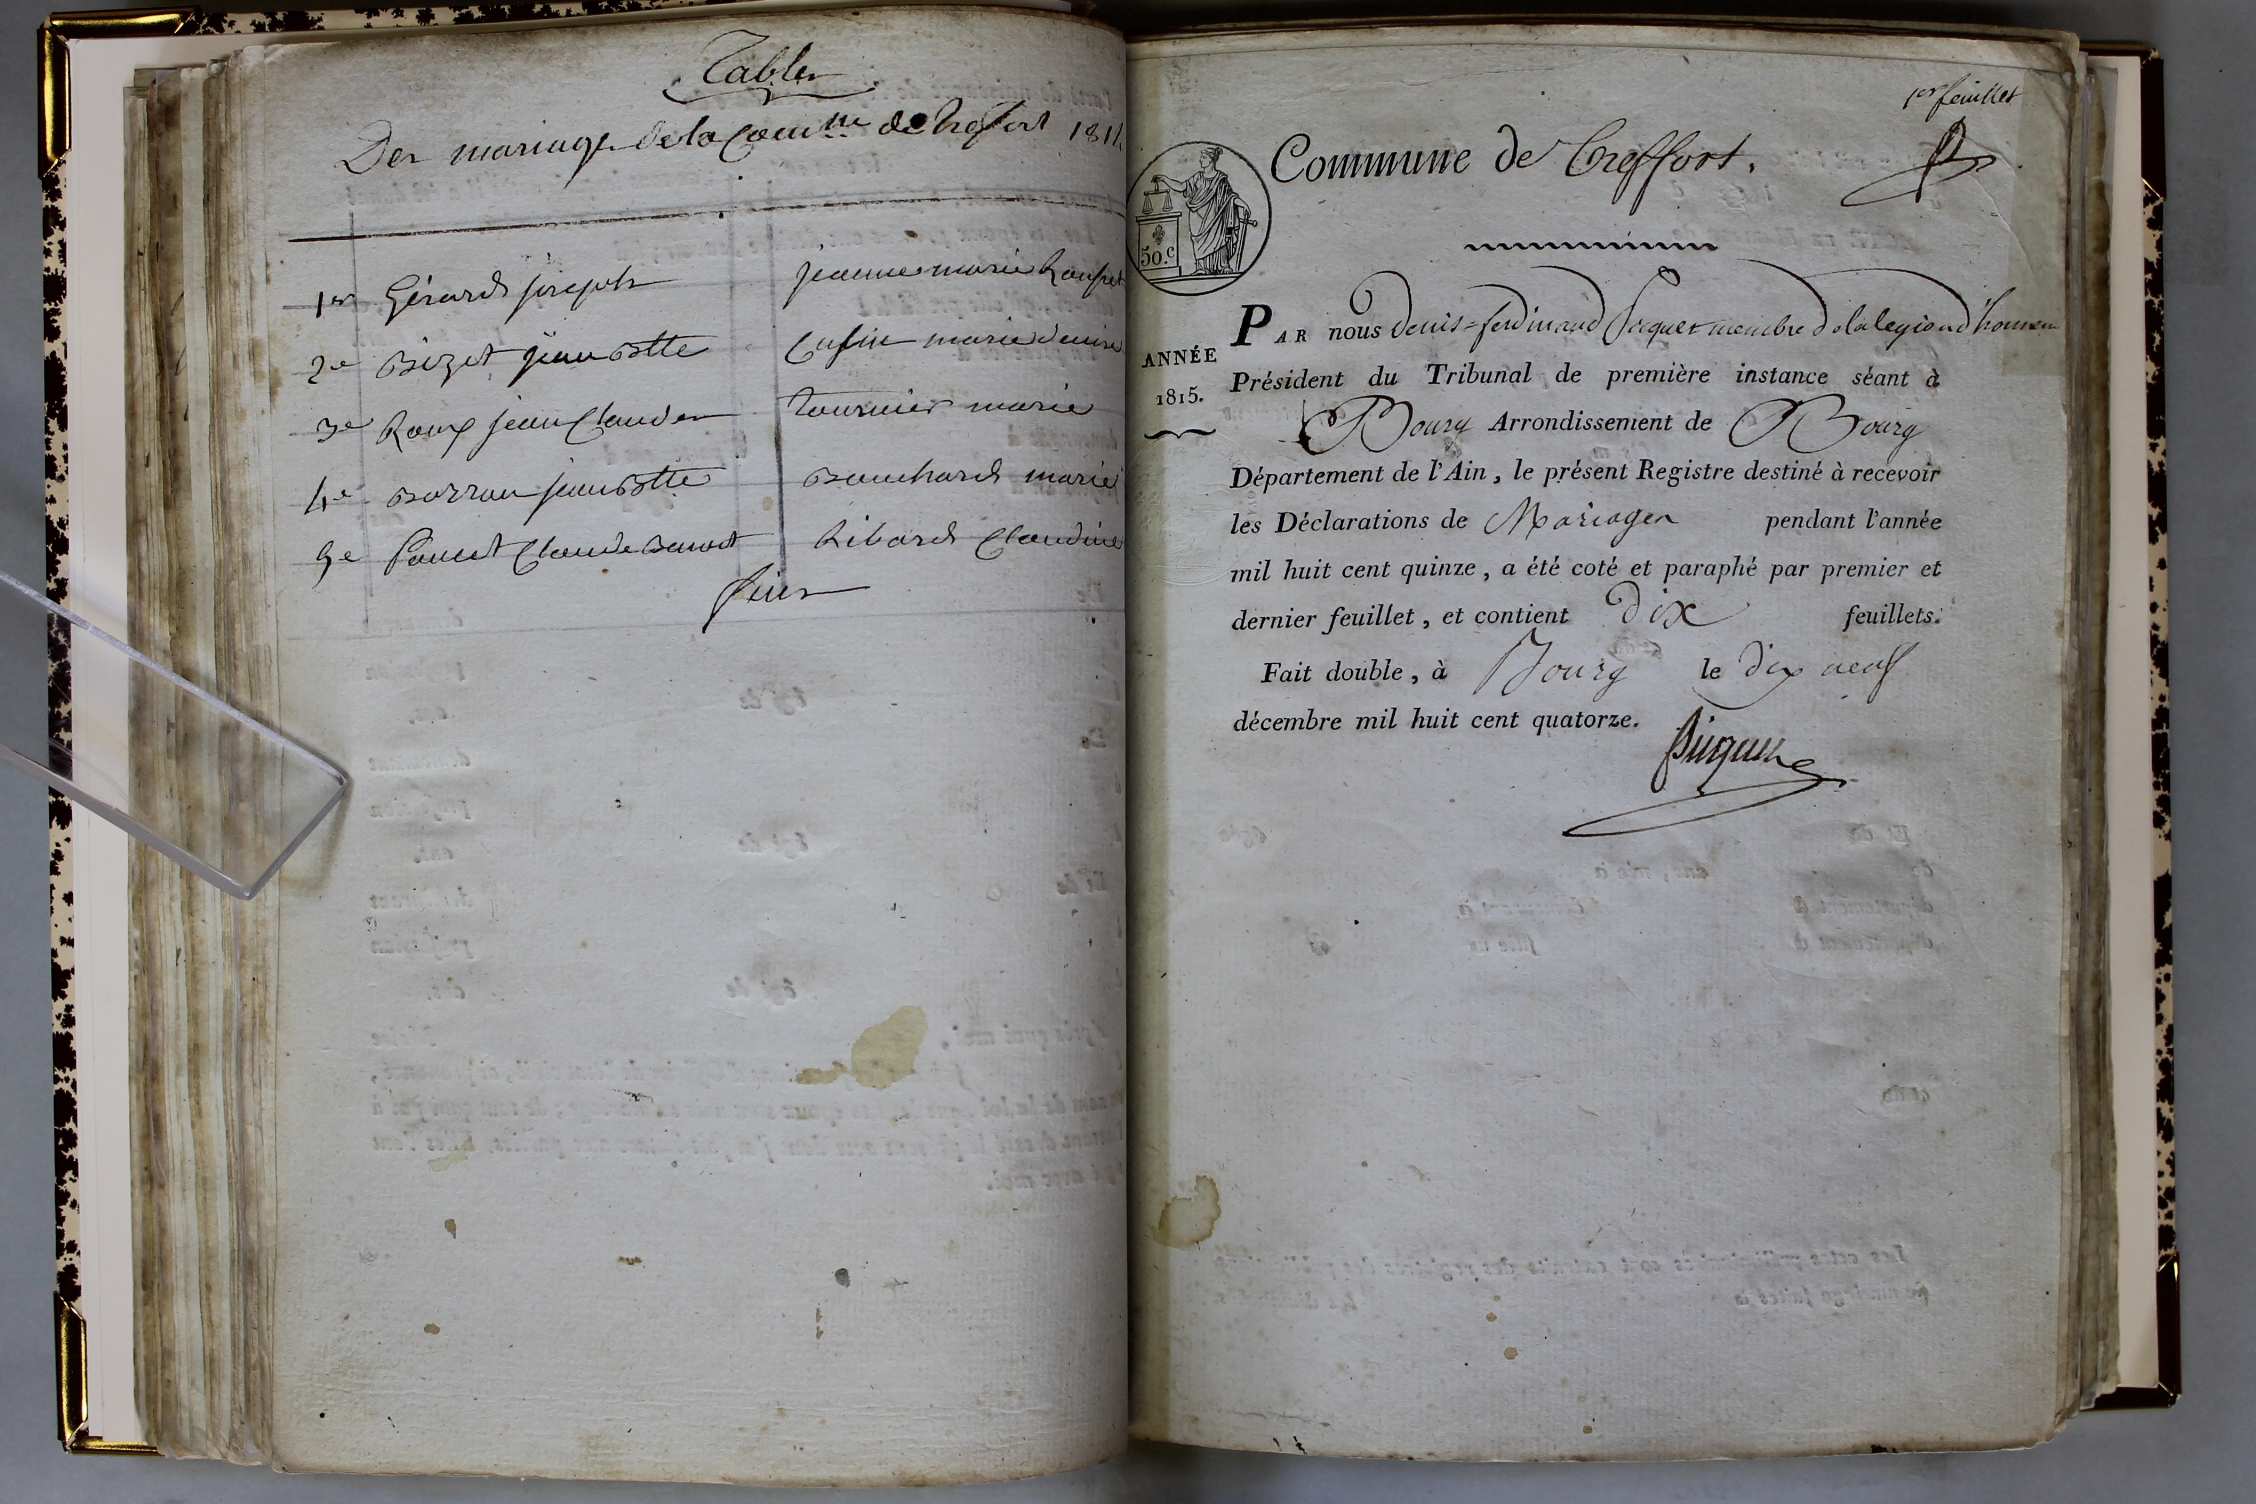 Table
Des mariage de la Comm.ne de treffort 181
1er Gérard joseph jeanne marie
2e Bizet jean Btte Cusin marie denise
3e Roux jean Claude Tournier marie
4e Borron jean Btte Bouchard marie
5e Poncet Claude Benoit Ribard Claudine
fin
1er feuillet
Commune de Treffort.
50.c
PAR nous Denis-ferdinand Picquet membre de la legion d'honneur
ANNÉE
1815.
Président du Tribunal de première instance séant à
Bourg Arrondissement de Bourg
Département de l'Ain, le présent Registre destiné à recevoir
les Déclarations de Mariages pendant l'année
mil huit cent quinze, a été coté et paraphé par premier et
dernier feuillet, et contient dix feuillets.
Fait double, à Bourg le dix neuf
décembre mil huit cent quatorze.
Picquet